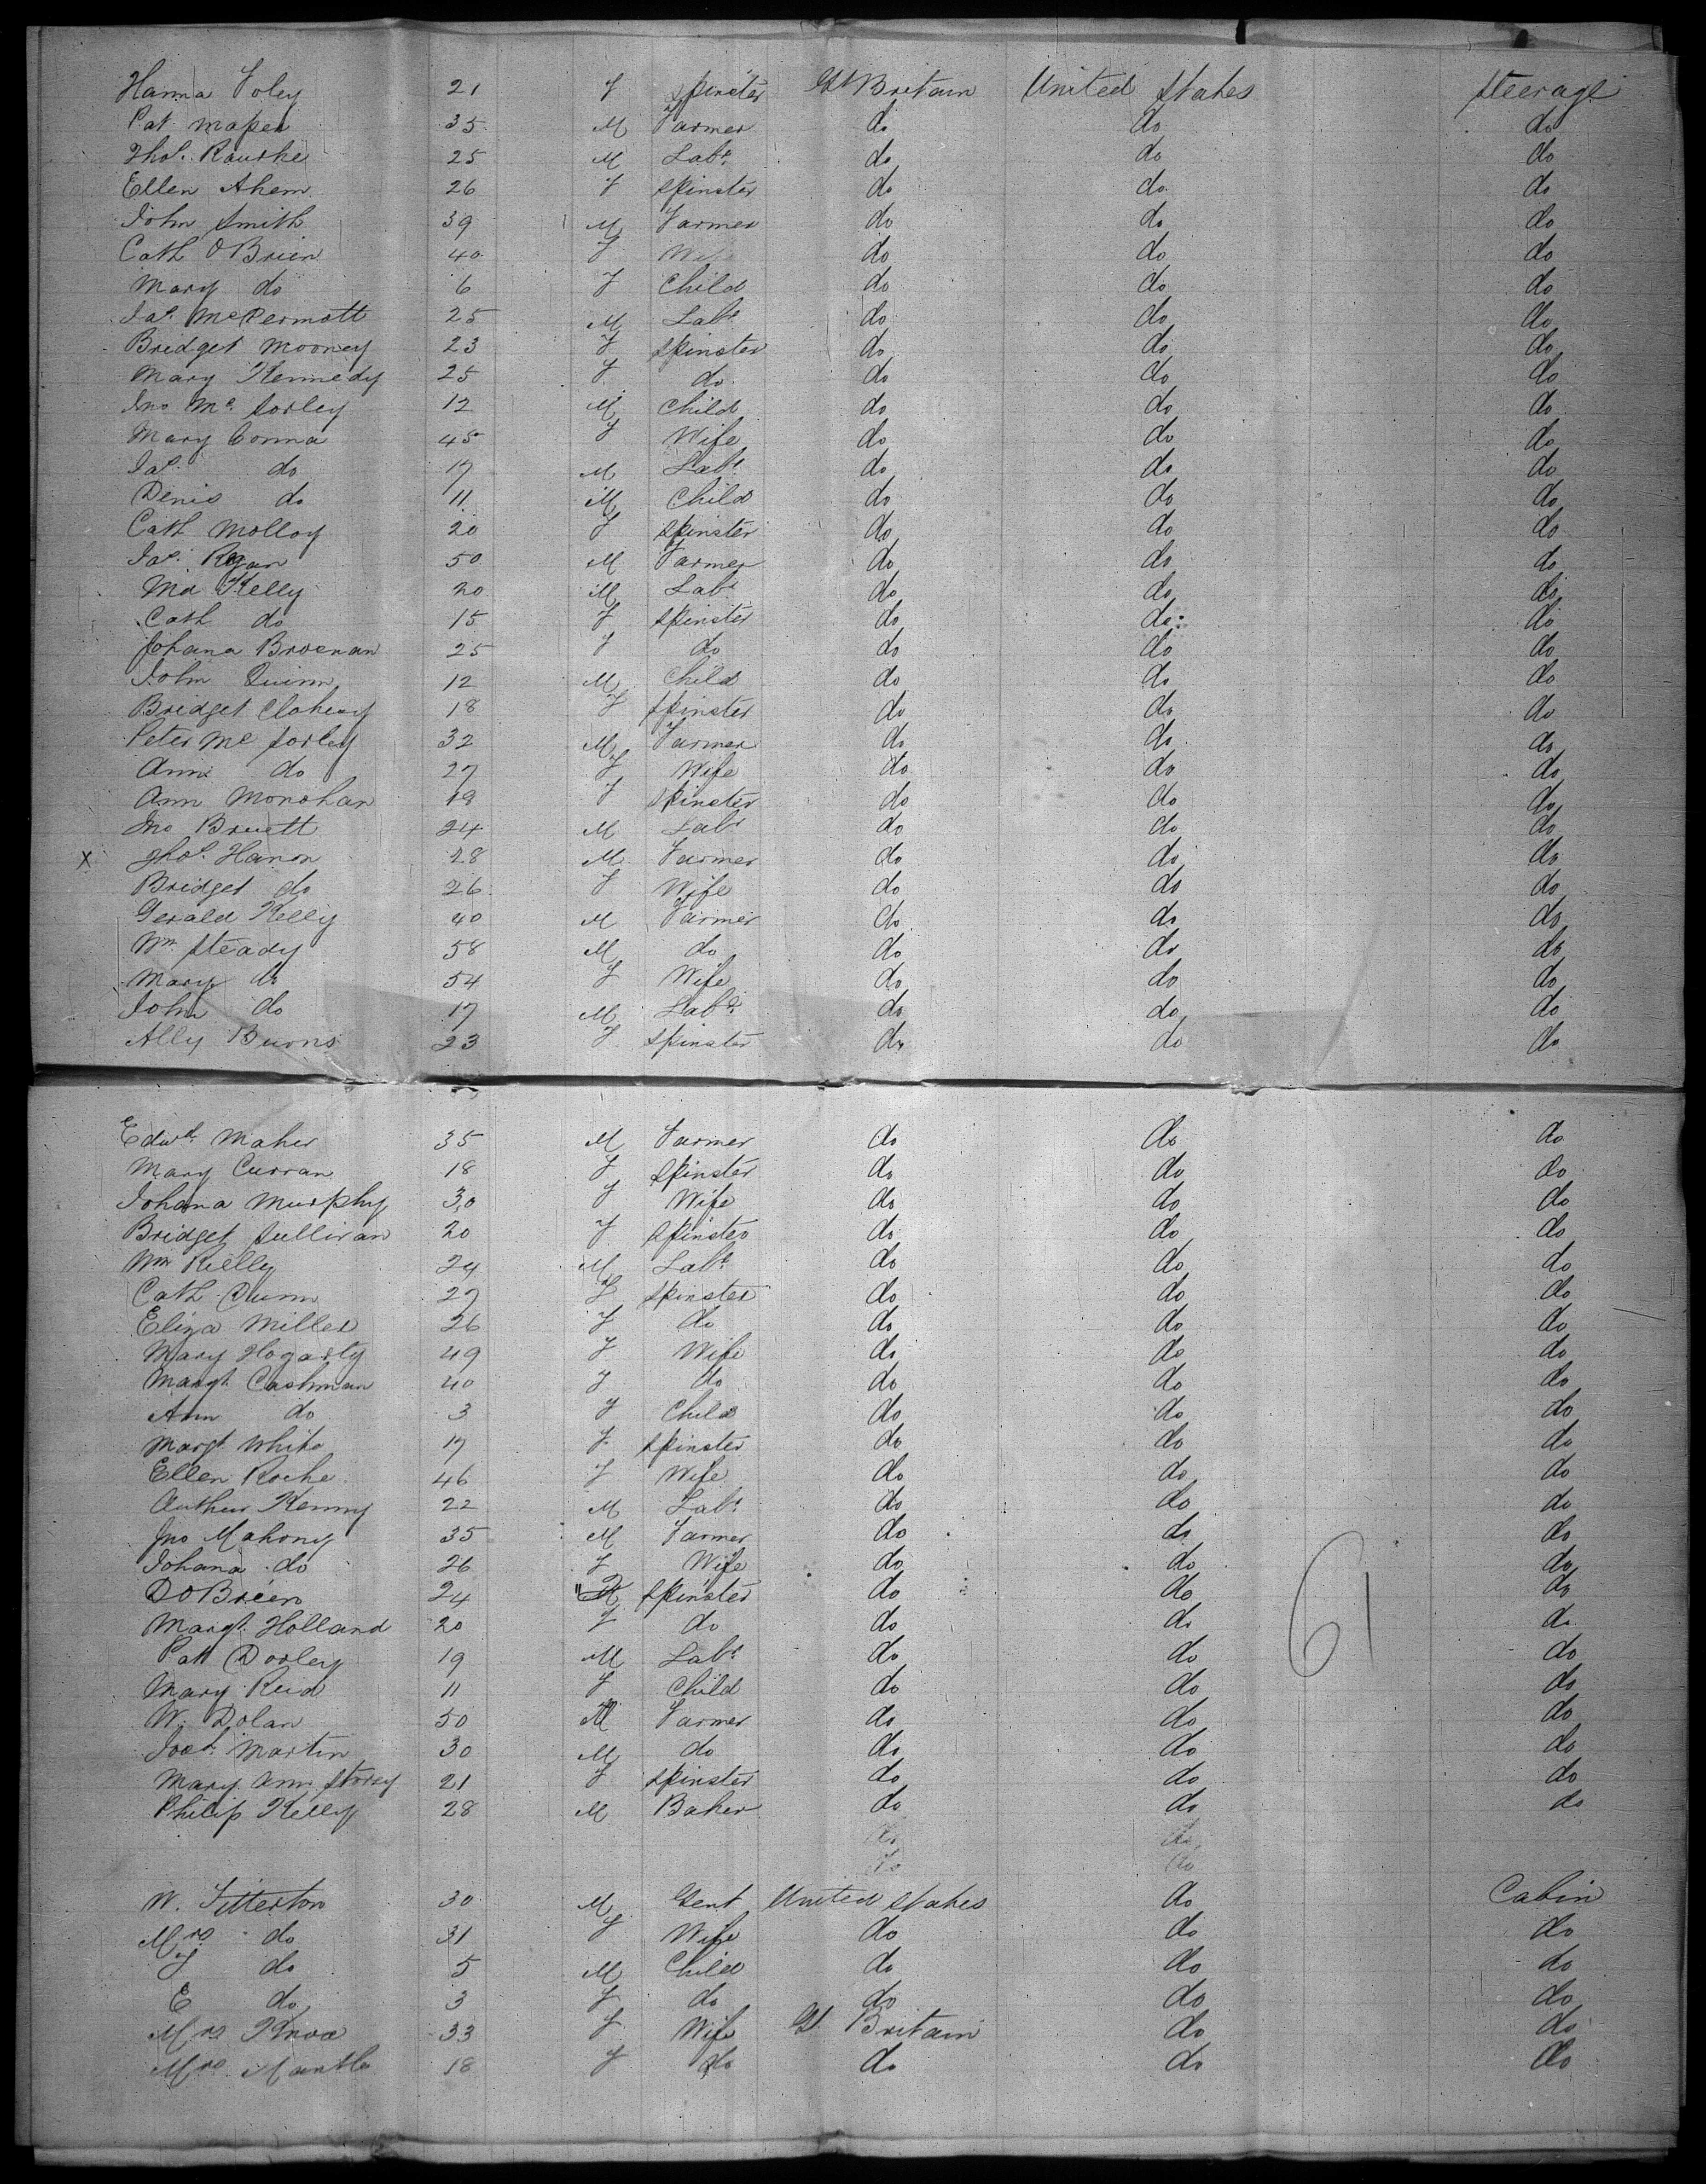 Hanna Foley 21 F Spinster Gt Britain United States Steerage
Pat Maper 35 M Farmer do do do
Thos. Rourke 25 M Labr do do do
Ellen Ahern 26 F Spinster do do do
John Smith 39 M Farmer do do do
Cath O'Brien 40 F Wife do do do
Mary do 6 F Child do do do
Jas. McDermott 25 M Labr do do do
Bridget Mooney 23 F Spinster do do do
Mary Kennedy 25 F do do do do
Jno Mc Sorley 12 M Child do do do
Mary Conna 45 F Wife do do do
Jas. do 17 M Labr do do do
Denis do 11 M Child do do do
Cath Molloy 20 F Spinster do do do
Jas. Regan 50 M Farmer do do do
Md Kelly 20 M Labr do do do
Cath do 15 F Spinster do do do
Johana Brosnan 25 F do do do do
John Quinn 12 M Child do do do
Bridget Clohesy 18 F Spinster do do do
Peter Mc Sorley 32 M Farmer do do do
Ann do 27 F Wife do do do
Ann Monohan 19 F Spinster do do do
Jno Bruett 24 M Labr do do do
x Thos. Hanon 28 M Farmer do do do
Bridget do 26 F Wife do do do
Gerald Kelly 40 M Farmer do do do
Wm Steady 58 M do do do do
Mary do 54 F Wife do do do
John do 17 M Labr do do do
Ally Burns 23 F Spinster do do do
Edwd. Maher 35 M Farmer do do do
Mary Curran 18 F Spinster do do do
Johana Murphy 30 F Wife do do do
Bridget Sullivan 20 F Spinster do do do
Wm Rielly 24 M Labr do do do
Cath Dunn 27 F Spinster do do do
Eliza Miller 26 F do do do do
Mary Hogarty 49 F Wife do do do
Margt. Cashman 40 F do do do do
Ann do 3 F Child do do do
Margt. White 17 F Spinster do do do
Ellen Roche 46 F Wife do do do
Arthur Kenny 22 M Labr do do do
Jno Mahony 35 M Farmer do do do
Johana do 26 F Wife do do do
D O'Brien 24 F Spinster do do do
Margt. Holland 20 F do do do do
Pat Dorley 19 M Labr do do do
Mary Reid 11 F Child do do do
W. Dolan 50 M Farmer do do do
Josh. Martin 30 M do do do do
Mary Ann Storey 21 F Spinster do do do
Philip Kelly 28 M Baker do do do
do do
do do
W. Fitterton 30 M Gent United States do Cabin
Mrs do 31 F Wife do do do
J do 5 M Child do do do
E do 3 F do do do do
Mrs Knox 33 F Wife Gt Britain do do
Mrs. Mantle 18 F do do do do
61